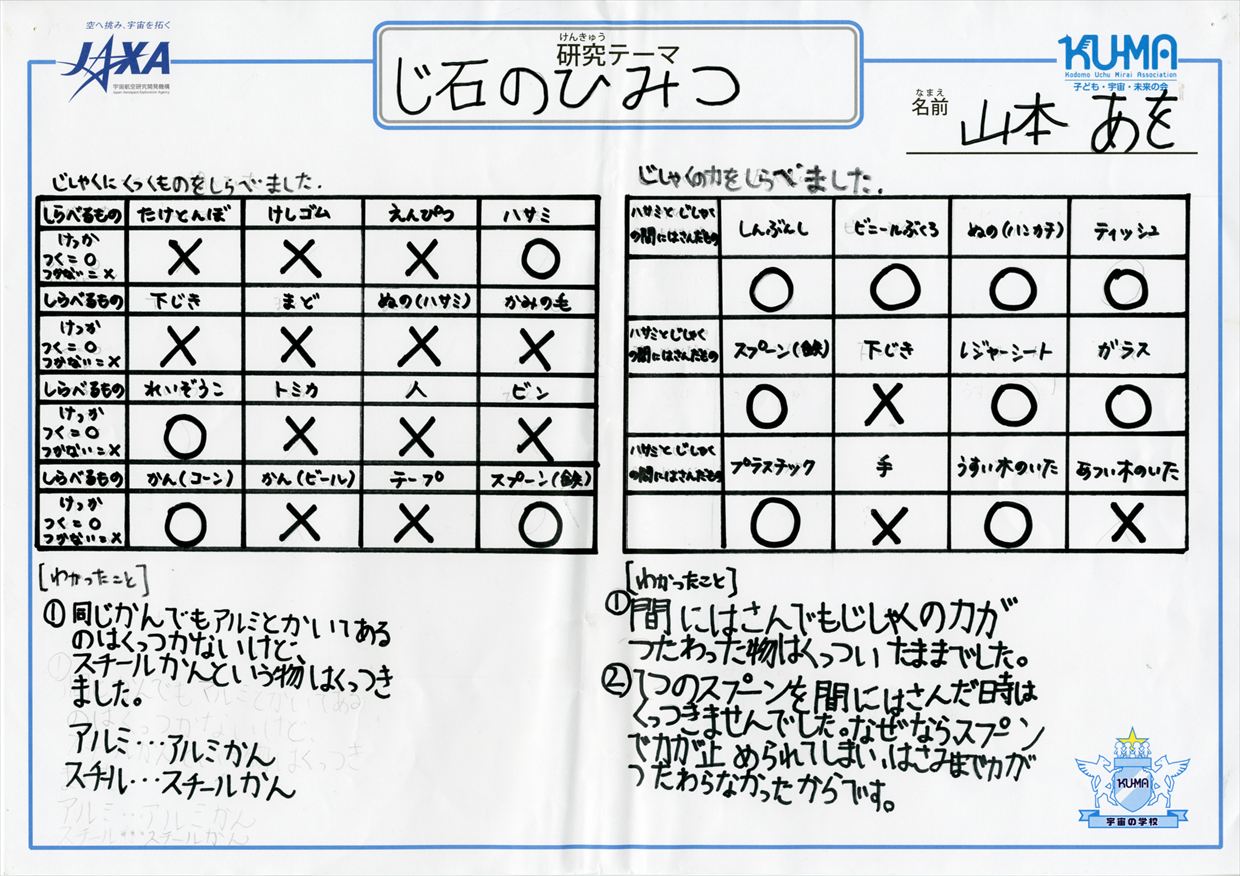 空へ挑み、宇宙を拓く
JAXA
宇宙航空研究開発機構
Japan Aerospace Exploration Agency
けんきゅう
研究テーマ
じ石のひみつ
KU-MA
Kodomo Uchu Mirai Association
子ども・宇宙・未来の会
なまえ
名前 山本 あを
じしゃくにくっくものをしらべました.
しらべるもの たけとんぼ けしゴム えんぴつ ハサミ
けっか
つく=○
つかない=× × × × ○
しらべるもの 下じき まど ぬの(ハサミ) かみの毛
けっか
つく=○
つかない=× × × × ×
しらべるもの れいぞうこ トミカ 人 ビン
けっか
つく=○
つかない=× ○ × × ×
しらべるもの かん(コーン) かん(ビール) テープ スプーン(鉄)
けっか
つく=○
つかない=× ○ × × ○
[わかったこと]
① 同じかんでもアルミとかいてある
のはくっつかないけど、
スチールかんという物はくっつき
ました。
アルミ…アルミかん
スチール…スチールかん
じしゃくの力をしらべました.
ハサミとじしゃく
の間にはさんだもの しんぶんし ビニールぶくろ ぬの(ハンカチ) ティッシュ
○ ○ ○ ○
ハサミとじしゃく
の間にはさんだもの スプーン(鉄) 下じき レジャーシート ガラス
○ × ○ ○
ハサミとじしゃく
の間にはさんだもの プラスチック 手 うすい木のいた あつい木のいた
○ × ○ ×
[わかったこと]
①間にはさんでもじしゃくの力が
つたわった物はくっついたままでした。
②1つのスプーンを間にはさんだ日時は
くっつきませんでした。なぜなら、スプーン
で力が止められてしまい、はさみまで力が
つたわらなかったからです。
KU-MA
宇宙の学校